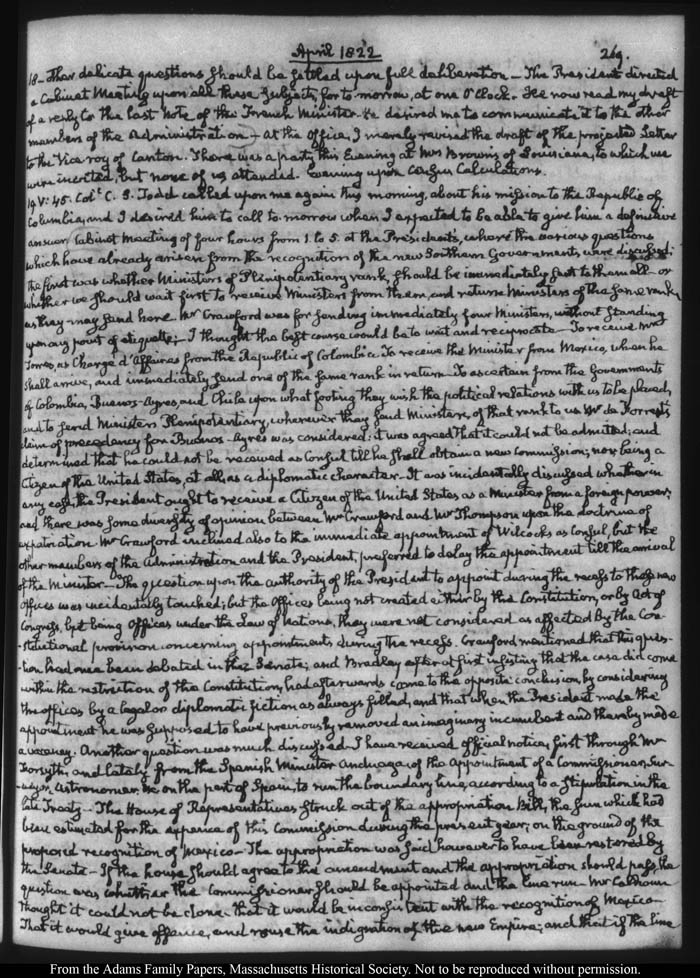 April 1822
269.
18– That delicate questions should be settled upon full deliberation – The President directed
a Cabinet Meeting upon all these subjects, for to-morrow, at one O'Clock. He now read my draft
of a reply to the last Note of the French Minister. He desired me to communicate it to the other
members of the Administration – At the Office, I merely revised the draft of the projected Letter
to the Vice roy of Canton. There was a party this Evening at Mrs Brown's of Louisiana, to which we
were invited, but none of us attended. Evening upon Calculations.
19. V: 45. Coll. C. S. Todd called upon me again this morning, about his mission to the Republic of
Columbia, and I desired him to call to-morrow when I expected to be able to give him a definitive
answer. Cabinet Meeting of four hours from 1. to 5. at the President's, where the various questions
which have already arisen from the recognition of the new Southern Governments, were discussed.
The first was whether Ministers of Plenipotentiary rank, should be immediately sent to them all – or
whether we should wait first to receive Ministers from them, and return Ministers of the same rank
as they may send here. Mr Crawford was for sending immediately four Ministers, without standing
upon any point of etiquette; – I thought the best course would be to wait and reciprocate – To receive Mr
Torres, as Chargé d'Affaires from the Republic of Colombia. To receive the Minister from Mexico, when he
shall arrive, and immediately send one of the same rank in return – To ascertain from the Governments
of Colombia, Buenos-Ayres, and Chili upon what footing they wish the political relations with us to be placed,
and to send Ministers Plenipotentiary, wherever they send Ministers, of that rank to us. Mr de Forrest's
claim of precedency for Buenos-Ayres was considered; it was agreed that it could not be admitted; and
determined that he could not be received as Consul till he shall obtain a new Commission; nor being a
Citizen of the United States, at all, as a diplomatic character – It was incidentally discussed whether in
any case, the President ought to receive a Citizen of the United States as a Minister from a foreign power;
and there was some diversity of opinion between Mr Crawford and Mr Thompson upon the doctrine of
expatriation. Mr Crawford inclined also to the immediate appointment of Wilcocks as Consul, but the
other members of the Administration and the President, preferred to delay the appointment till the arrival
of the Minister – The question upon the authority of the President to appoint during the recess to these new
Offices was incidentally touched; but the Offices being not created either by the Constitution, or by Act of
Congress, but being Offices under the Law of Nations, they were not considered as affected by the Con-
stitutional provision concerning appointments during the recess. Crawford mentioned that this ques-
tion had once been debated in the Senate; and Bradley after at first insisting that the case did come
within the restriction of the Constitution, had afterwards come to the opposite conclusion, by considering
the offices by a legal or diplomatic fiction as always filled, and that when the President made the
appointment he was supposed to have previously removed an imaginary incumbent and thereby made
a vacancy. Another question was much discussed. I have received official notice, first through Mr
Forsyth, and lately from the Spanish Minister Anduaga, of the Appointment of a Commissioner, Sur-
veyor, Astronomer, &c on the part of Spain, to run the boundary line, according to a stipulation in the
late Treaty – The House of Representatives struck out of the appropriation Bill, the sum which had
been estimated for the expence of this Commission during the present year; on the ground of the
proposed recognition of Mexico – The appropriation was said however to have been restored by
the Senate – If the house should agree to the amendment and the appropriation should pass, the
question was whether the Commissioner should be appointed and the line run – Mr Calhoun
thought it could not be done. That it would be inconsistent with the recognition of Mexico –
That it would give offence, and rouse the indignation of the new Empire; and that if the line
From the Adams Family Papers, Massachusetts Historical Society. Not to be reproduced without permission.